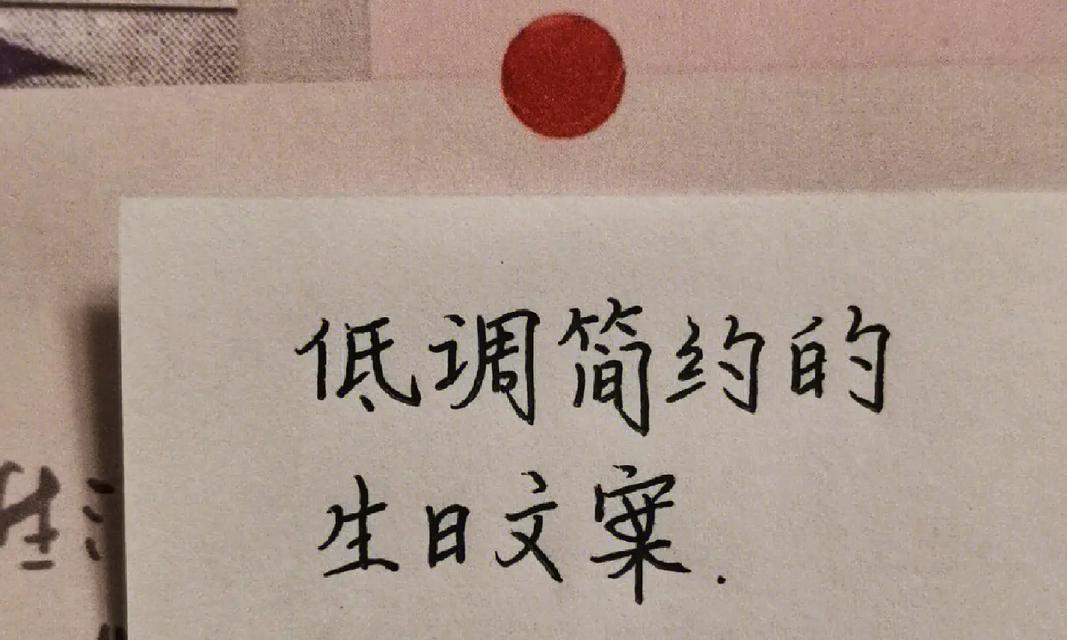 低调简约的
生日文案.